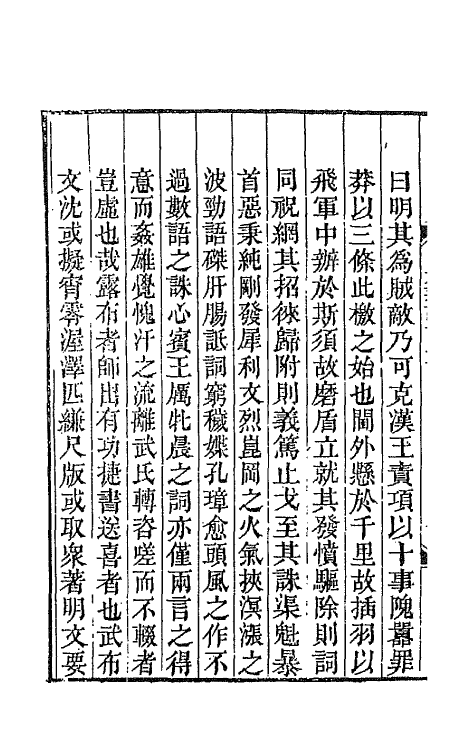 曰明其為賊敵乃可克漢王責項以十事隗囂罪
莽以三條此檄之始也閫外懸於千里故插羽以
飛軍中辦於斯須故磨盾立就其發憤驅除則詞
同祝網其招徠歸附則義篤止戈至其誅渠魁暴
首惡秉純剛發犀利文烈崑岡之火氣挾溟漲之
波勁語磔肝腸詆詞窮穢媟孔璋愈頭風之作不
過數語之誅心賓王厲牝晨之詞亦僅兩言之得
意而姦雄覺愧汗之流離武氏轉咨嗟而不輟者
豈虛也哉露布者師出有功捷書送喜者也武布
文沈或擬宵零渥澤匹縑尺版或取衆著明文要